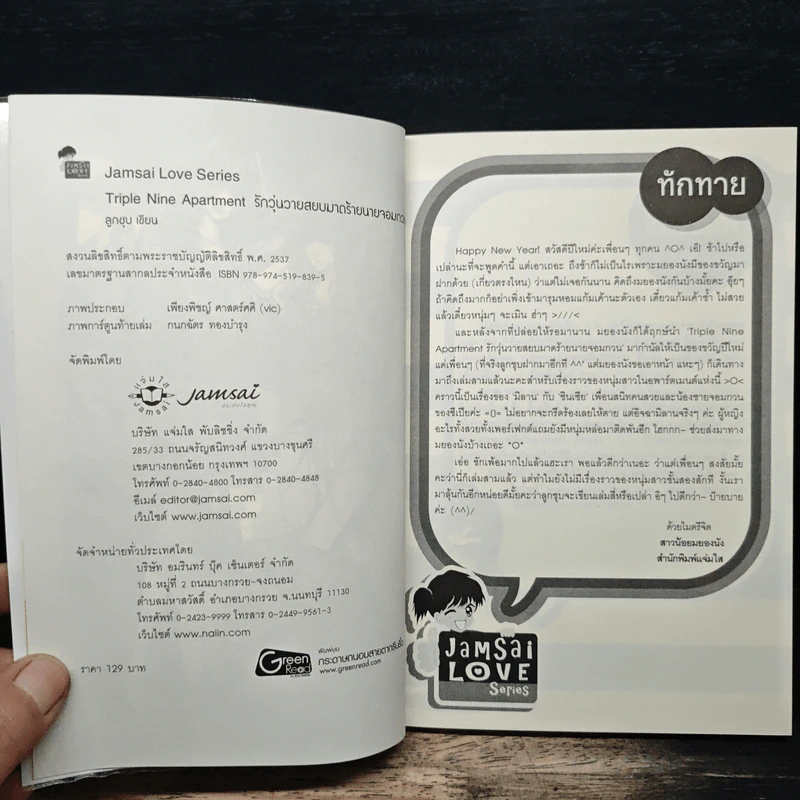 JAMSAI
LOVE
Jamsai Love Series
Triple Nine Apartment รักวุ่นวายสยบมาดร้ายนายจอมกวน
ลูกชุบ เขียน
สงวนลิขสิทธิ์ตามพระราชบัญญัติลิขสิทธิ์ พ.ศ. 2537
เลขมาตรฐานสากลประจำหนังสือ ISBN 978-974-519-839-5
ภาพประกอบ เพียงพิชญ์ ศาสตร์ศศิ (vic)
ภาพการ์ตูนท้ายเล่ม กนกฉัตร ทองบำรุง
จัดพิมพ์โดย
แจ่มใส
Jamsai
Jamsai
บริษัท แจ่มใส พับลิชชิ่ง จำกัด
285/33 ถนนจรัญสนิทวงศ์ แขวงบางขุนศรี
เขตบางกอกน้อย กรุงเทพฯ 10700
โทรศัพท์ 0-2840-4800 โทรสาร 0-2840-4848
อีเมล์ editor@jamsai.com
เว็บไซต์ www.jamsai.com
จัดจำหน่ายทั่วประเทศโดย
บริษัท อมรินทร์ บุ๊ค เซ็นเตอร์ จำกัด
108 หมู่ที่ 2 ถนนบางกรวย-จงถนอม
ตำบลมหาสวัสดิ์ อำเภอบางกรวย จ.นนทบุรี 11130
โทรศัพท์ 0-2423-9999 โทรสาร 0-2449-9561-3
เว็บไซต์ www.naiin.com
ราคา 129 บาท
Green
Read
พิมพ์บน
กระดาษถนอมสายตากรีนรี้ด
www.greenread.com
ทักทาย
Happy New Year! สวัสดีปีใหม่ค่ะเพื่อนๆ ทุกคน ^O^ เอ๊! ช้าไปหรือ
เปล่านะที่จะพูดคำนี้ แต่เอาเถอะ ถึงช้าก็ไม่เป็นไรเพราะมยองนังมีของขวัญมา
ฝากด้วย (เกี่ยวตรงไหน) ว่าแต่ไม่เจอกันนาน คิดถึงมยองนังกันบ้างมั้ยคะ อุ๊ยๆ
ถ้าคิดถึงมากก็อย่าเพิ่งเข้ามารุมหอมแก้มเค้านะตัวเอง เดี๋ยวแก้มเค้าช้ำ ไม่สวย
แล้วเดี๋ยวหนุ่มๆ จะเมิน ฮ่าๆ >///<
และหลังจากที่ปล่อยให้รอมานาน มยองนังก็ได้ฤกษ์นำ 'Triple Nine
Apartment รักวุ่นวายสยบมาดร้ายนายจอมกวน' มากำนัลให้เป็นของขวัญปีใหม่
แด่เพื่อนๆ (ที่จริงลูกชุบฝากมาอีกที ^^' แต่มยองนังขอเอาหน้า แหะๆ) ก็เดินทาง
มาถึงเล่มสามแล้วนะคะสำหรับเรื่องราวของหนุ่มสาวในอพาร์ตเมนต์แห่งนี้ >O<
คราวนี้เป็นเรื่องของ 'มิลาน' กับ 'ซินเซีย' เพื่อนสนิทคนสวยและน้องชายจอมกวน
ของซีเปียค่ะ =[]= ไม่อยากจะกรีดร้องเลยให้ตาย แต่อิจฉามิลานจริงๆ ค่ะ ผู้หญิง
อะไรทั้งสวยทั้งเพอร์เฟกต์แถมยังมีหนุ่มหล่อมาติดพันอีก โฮกกก~ ช่วยส่งมาทาง
มยองนังบ้างเถอะ "O"
เอ่อ ชักเพ้อมากไปแล้วแฮะเรา พอแล้วดีกว่าเนอะ ว่าแต่เพื่อนๆ สงสัยมั้ย
คะว่านี่ก็เล่มสามแล้ว แต่ทำไมยังไม่มีเรื่องราวของหนุ่มสาวชั้นสองสักที งั้นเรา
มาลุ้นกันอีกหน่อยดีมั้ยคะว่าลูกชุบจะเขียนเล่มสี่หรือเปล่า อิๆ ไปดีกว่า~ บ๊ายบาย
ค่ะ (^^)/
ด้วยไมตรีจิต
สาวน้อยมยองนัง
สำนักพิมพ์แจ่มใส
JAMSAI
LOVE
Series